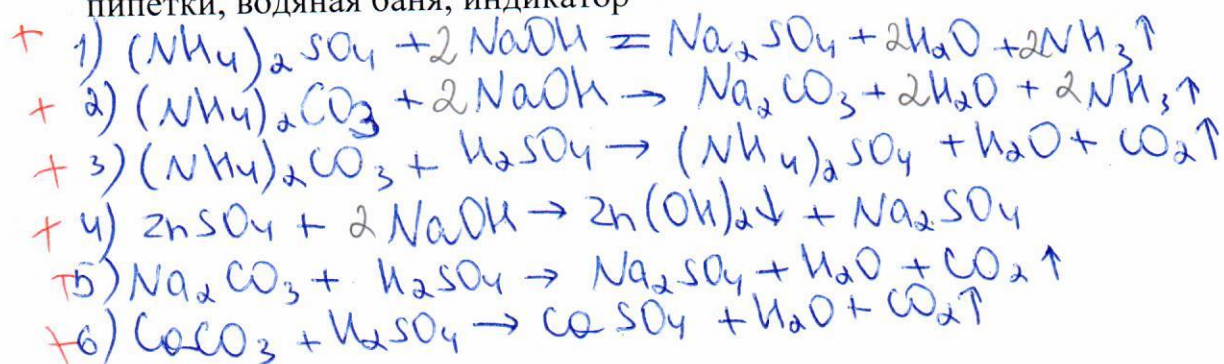 пипетки, водяная баня, индикатор
+ 1) (NH₄)₂SO₄ + 2NaOH = Na₂SO₄ + 2H₂O + 2NH₃↑
+ 2) (NH₄)₂CO₃ + 2NaOH → Na₂CO₃ + 2H₂O + 2NH₃↑
+ 3) (NH₄)₂CO₃ + H₂SO₄ → (NH₄)₂SO₄ + H₂O + CO₂↑
+ 4) ZnSO₄ + 2NaOH → Zn(OH)₂↓ + Na₂SO₄
+ 5) Na₂CO₃ + H₂SO₄ → Na₂SO₄ + H₂O + CO₂↑
+ 6) CaCO₃ + H₂SO₄ → CaSO₄ + H₂O + CO₂↑